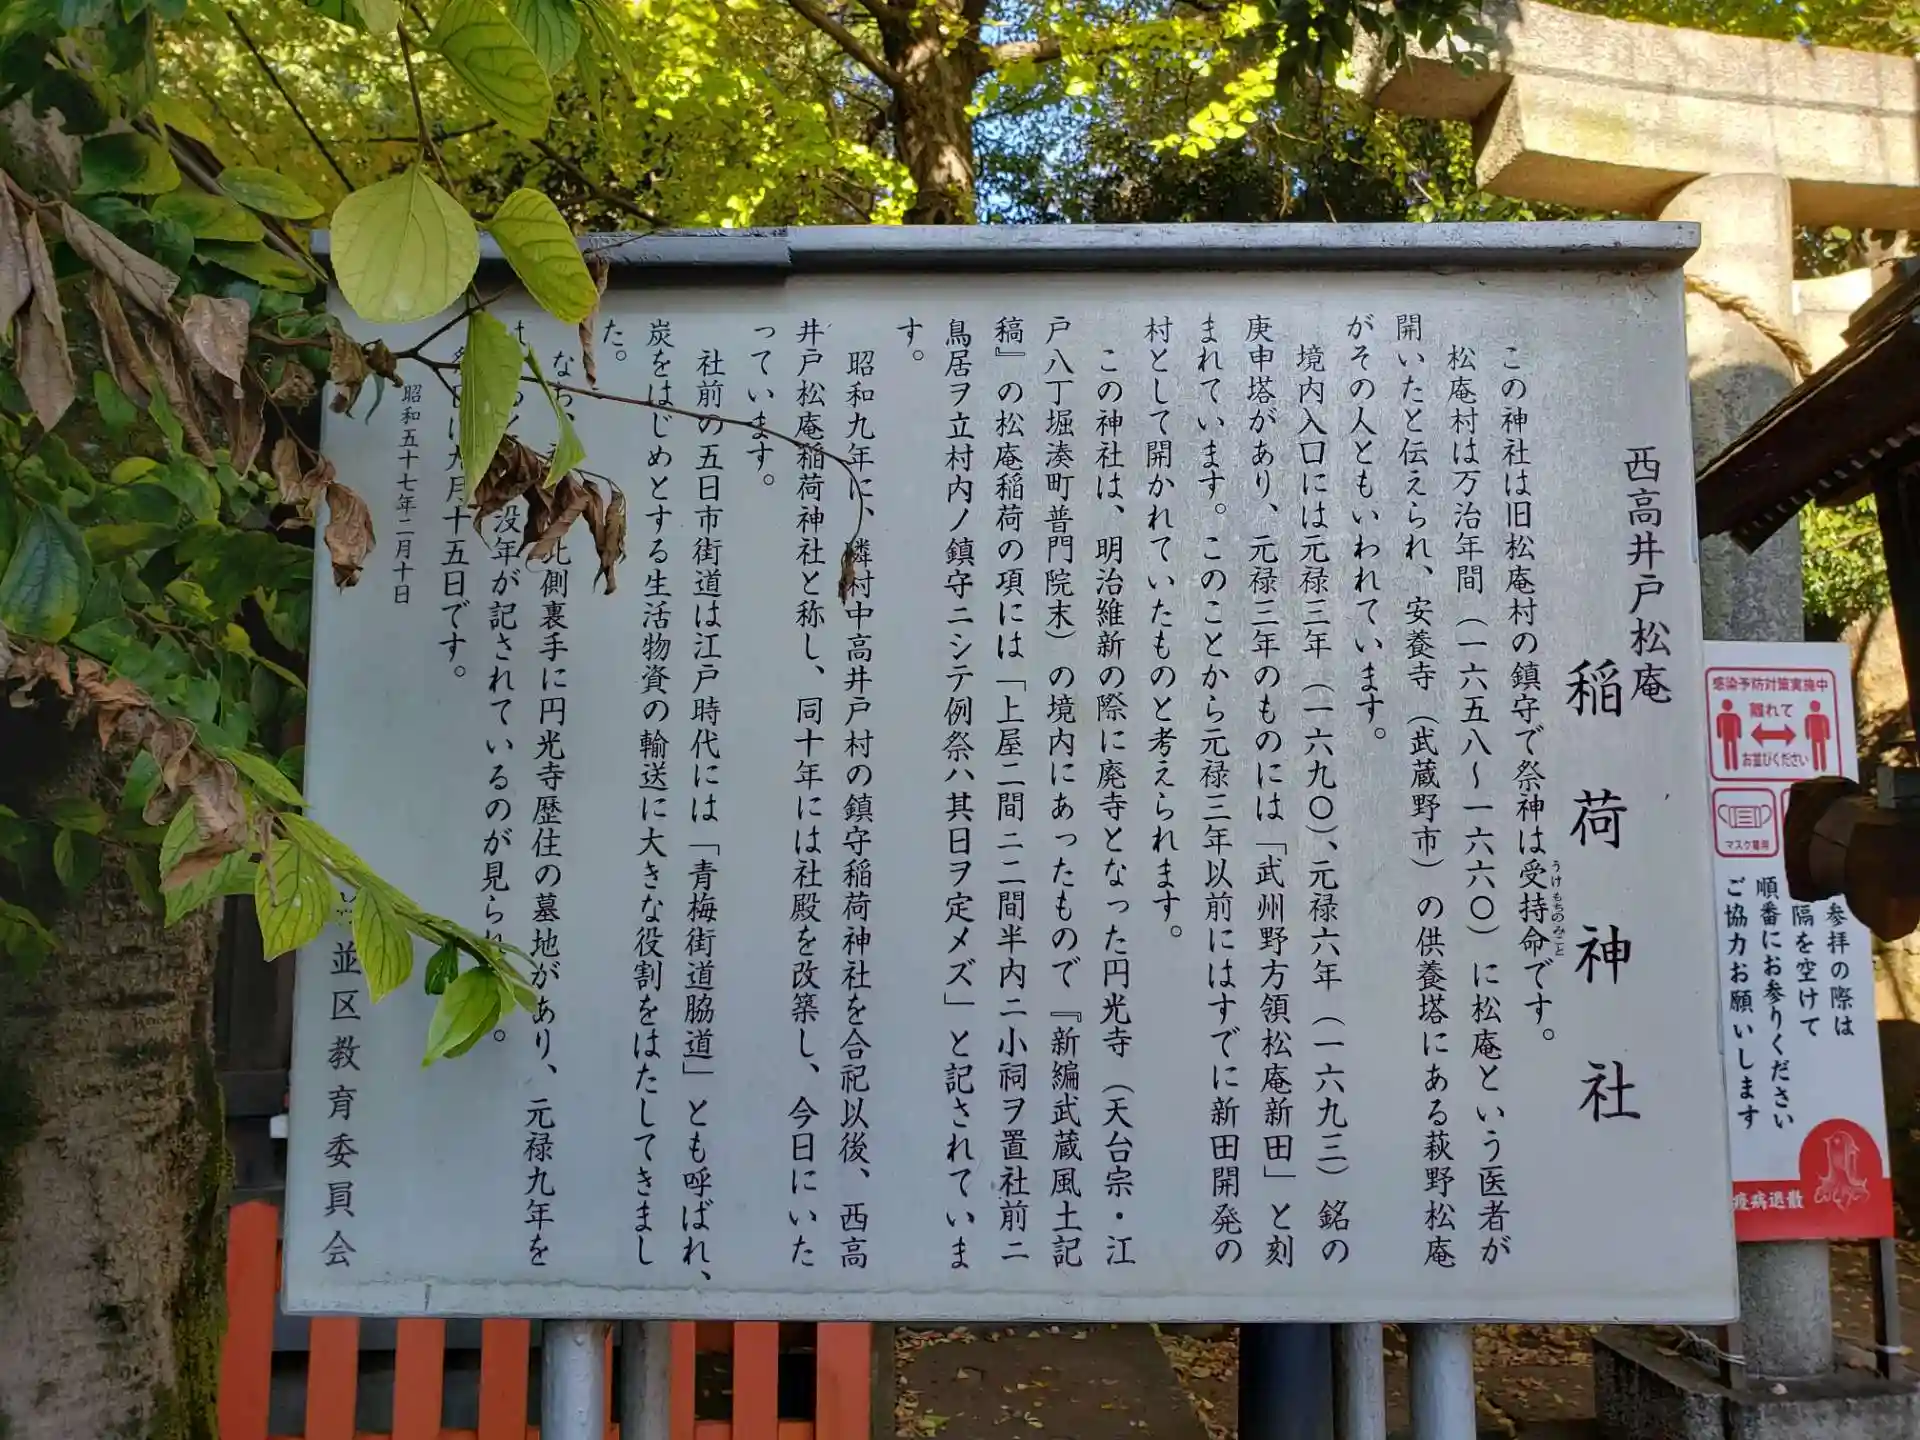 西高井戸松庵
稲荷神社
この神社は旧松庵村の鎮守で祭神は受持命です。
うけもちのみこと
松庵村は万治年間（一六五八〜一六六〇）に松庵という医者が
開いたと伝えられ、安養寺（武蔵野市）の供養塔にある萩野松庵
がその人ともいわれています。
境内入口には元禄三年（一六九〇）、元禄六年（一六九三）銘の
庚申塔があり、元禄三年のものには「武州野方領松庵新田」と刻
まれています。このことから元禄三年以前にはすでに新田開発の
村として開かれていたものと考えられます。
この神社は、明治維新の際に廃寺となった円光寺（天台宗・江
戸八丁堀湊町普門院末）の境内にあったもので『新編武蔵風土記
稿』の松庵稲荷の項には「上屋二間ニ二間半内ニ小祠ヲ置社前ニ
鳥居ヲ立村内ノ鎮守ニシテ例祭ハ其日ヲ定メズ」と記されていま
す。
昭和九年に、隣村中高井戸村の鎮守稲荷神社を合祀以後、西高
井戸松庵稲荷神社と称し、同十年には社殿を改築し、今日にいた
っています。
社前の五日市街道は江戸時代には「青梅街道脇道」とも呼ばれ、
炭をはじめとする生活物資の輸送に大きな役割をはたしてきまし
た。
なお、北側裏手に円光寺歴住の墓地があり、元禄九年を
没年が記されているのが見られ。
祭日は九月十五日です。
昭和五十七年二月十日
並区教育委員会
感染予防対策実施中
離れて
お並びください
マスク着用
参拝の際は
隔を空けて
順番にお参りください
ご協力お願いします
疫病退散